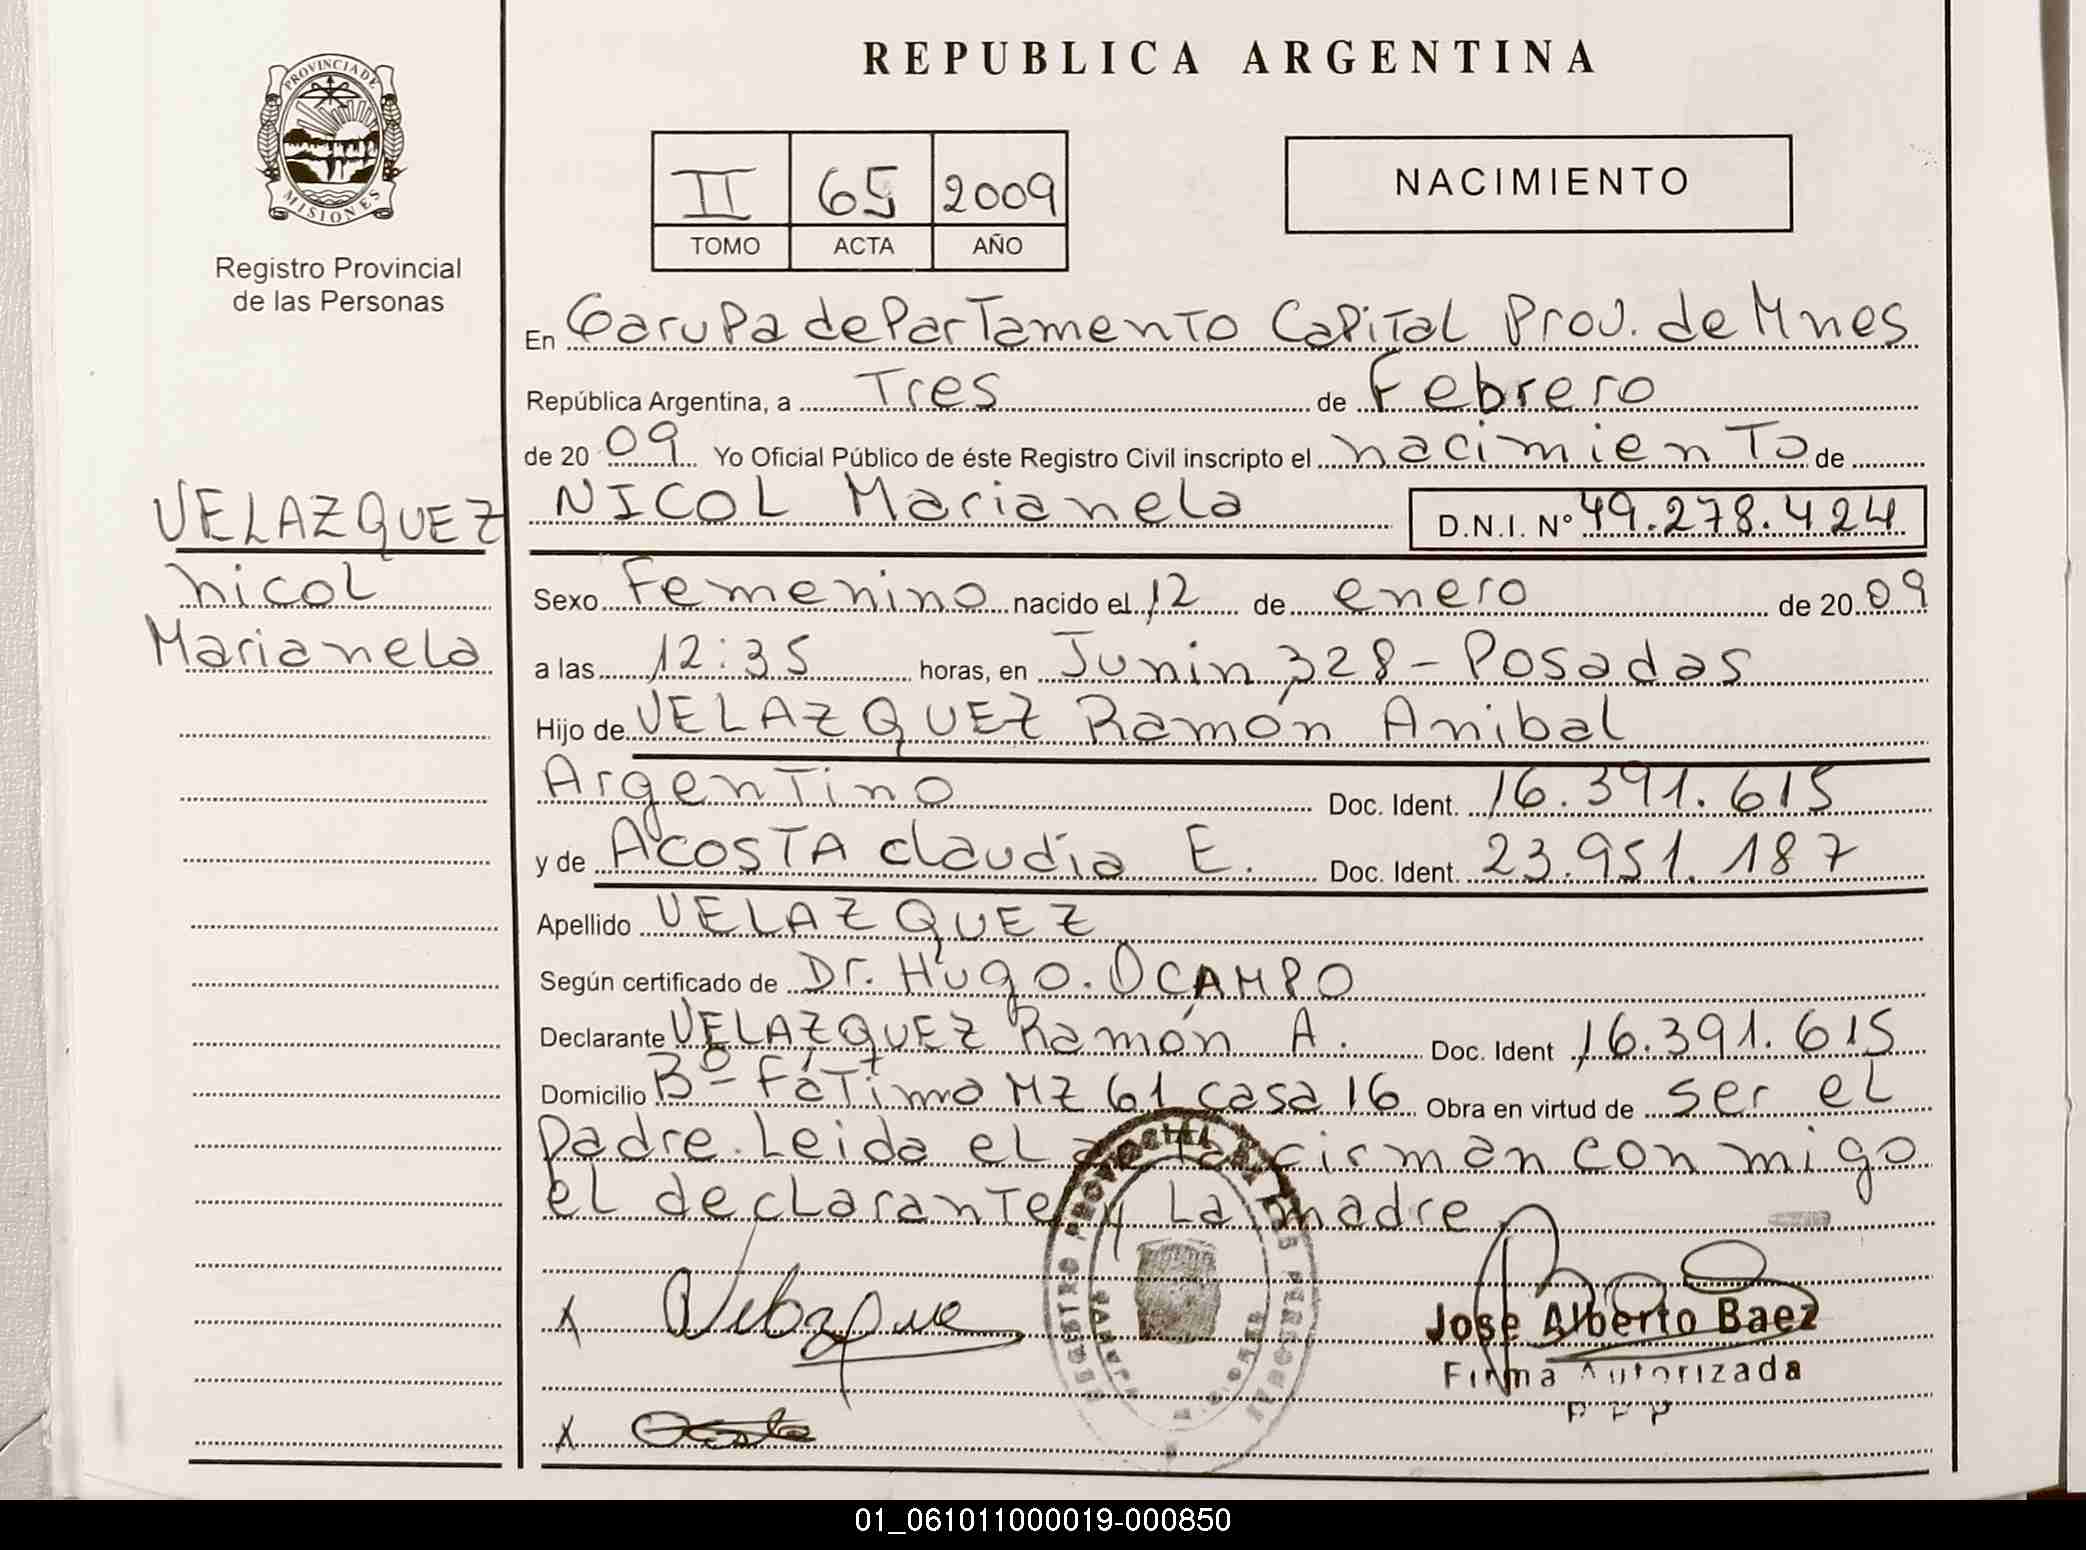 REPUBLICA ARGENTINA
PROVINCIA DE
MISIONES
Registro Provincial
de las Personas
II 65 2009
TOMO ACTA AÑO
NACIMIENTO
En Garupa departamento Capital Prov. de Mnes
República Argentina, a Tres de Febrero
de 2009 Yo Oficial Público de éste Registro Civil inscripto el nacimiento de
NICOL Marianela D.N.I. Nº 49.278.424
VELAZQUEZ
nicol
Marianela
Sexo Femenino nacido el 12 de enero de 2009
a las 12:35 horas, en Junin 328 - Posadas
Hijo de VELAZQUEZ Ramón Anibal
Argentino Doc. Ident. 16.391.615
y de ACOSTA claudia E. Doc. Ident. 23.951.187
Apellido VELAZQUEZ
Según certificado de Dr. Hugo. OCAMPO
Declarante VELAZQUEZ Ramón A. Doc. Ident 16.391.615
Domicilio Bº- Fátima MZ 61 casa 16 Obra en virtud de ser el
padre. Leida el acta firman con migo
el declarante y La madre
REGISTRO PROVINCIAL DE LAS PERSONAS
MISIONES
X Velazque
Jose Alberto Baez
Firma Autorizada
X
01_061011000019-000850